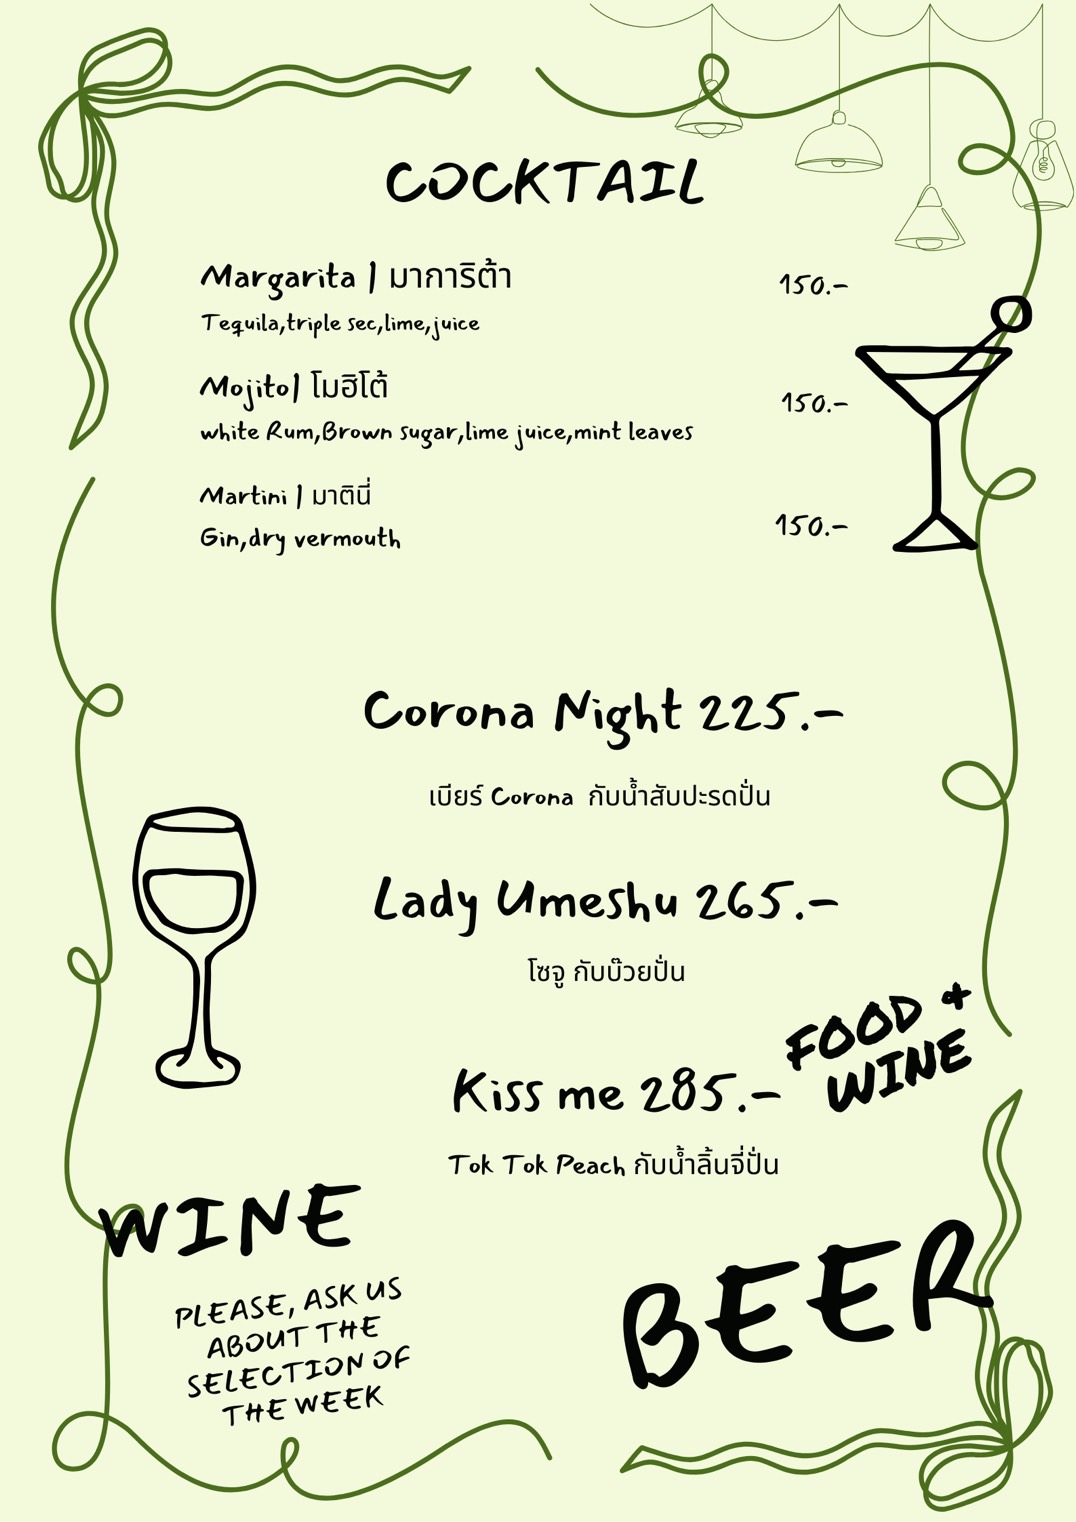 COCKTAIL
Margarita | มาการิต้า 150.-
Tequila,triple sec,lime,juice
Mojito| โมฮิโต้ 150.-
white Rum,Brown sugar,lime juice,mint leaves
Martini | มาตินี่
Gin,dry vermouth 150.-
Corona Night 225.-
เบียร์ Corona กับน้ำสับปะรดปั่น
Lady Umeshu 265.-
โซจู กับบ๊วยปั่น
FOOD +
WINE
Kiss me 285.-
Tok Tok Peach กับน้ำลิ้นจี่ปั่น
WINE
PLEASE, ASK US
ABOUT THE
SELECTION OF
THE WEEK
BEER